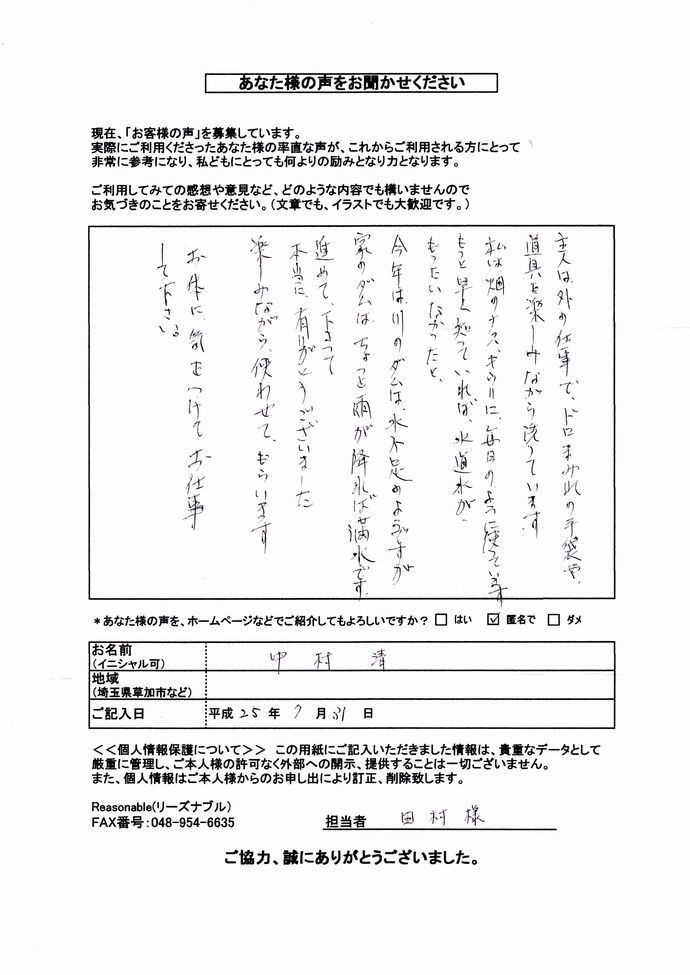 あなた様の声をお聞かせください
現在、「お客様の声」を募集しています。
実際にご利用くださったあなた様の率直な声が、これからご利用される方にとって
非常に参考になり、私どもにとっても何よりの励みとなり力となります。
ご利用してみての感想や意見など、どのような内容でも構いませんので
お気づきのことをお寄せください。(文章でも、イラストでも大歓迎です。)
主人は、外の仕事で、ドロまみれの手袋や、
道具を楽しみながら洗っています。
私は畑のナス、キウリに、毎日のように使っています
もっと早く知っていれば、水道水が、
もったいなかったと、
今年は、川のダムは、水不足のようですが
家のダムは、ちょっと雨が降れば満水です。
進めて、下さって
本当に、有りがとうございました
楽しみながら、使わせて、もらいます
お体に、気をつけてお仕事
して下さい。
*あなた様の声を、ホームページなどでご紹介してもよろしいですか? □ はい ☑ 匿名で □ ダメ
お名前
(イニシャル可) 中村 清
地域
(埼玉県草加市など)
ご記入日 平成 25 年 7 月 31 日
<<個人情報保護について>> この用紙にご記入いただきました情報は、貴重なデータとして
厳重に管理し、ご本人様の許可なく外部への開示、提供することは一切ございません。
また、個人情報はご本人様からのお申し出により訂正、削除致します。
Reasonable(リーズナブル)
FAX番号:048-954-6635 担当者 田村様
ご協力、誠にありがとうございました。